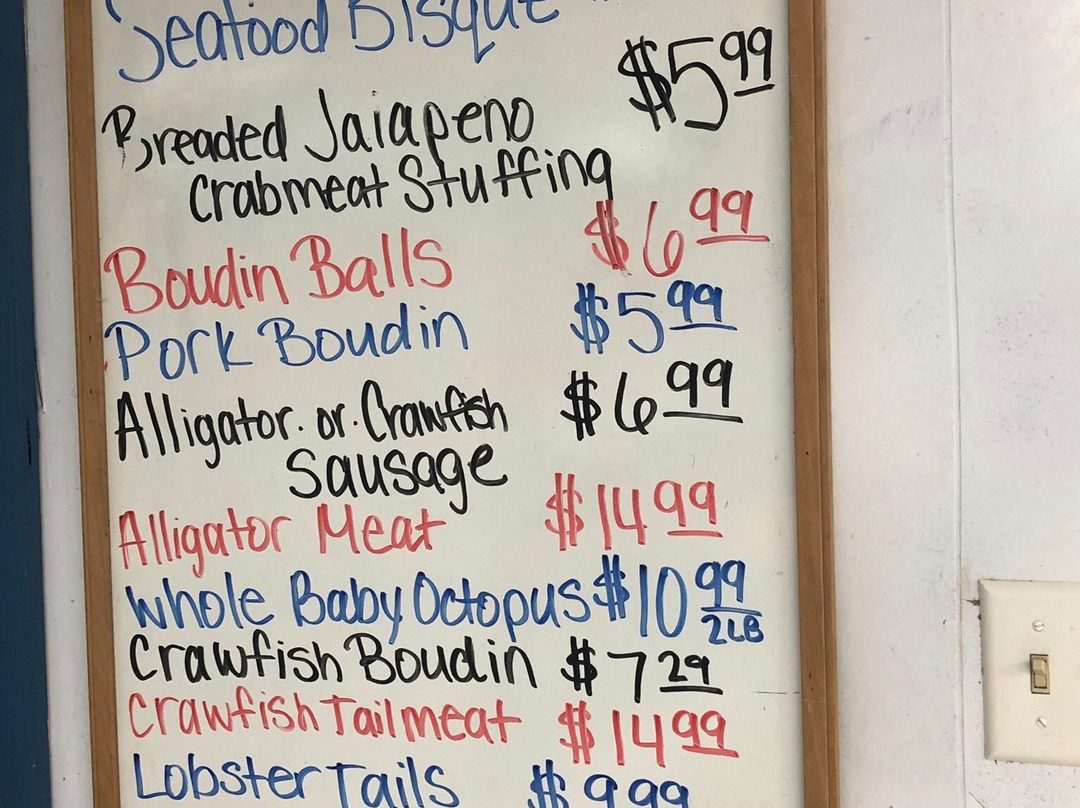 Seafood Bisque
$5.99
Breaded Jalapeno
Crabmeat Stuffing
Boudin Balls $6.99
Pork Boudin $5.99
Alligator. or. Crawfish $6.99
Sausage
Alligator Meat $14.99
Whole Baby Octopus $10.99
2LB
Crawfish Boudin $7.29
Crawfish Tail meat $14.99
Lobster Tails $9.99